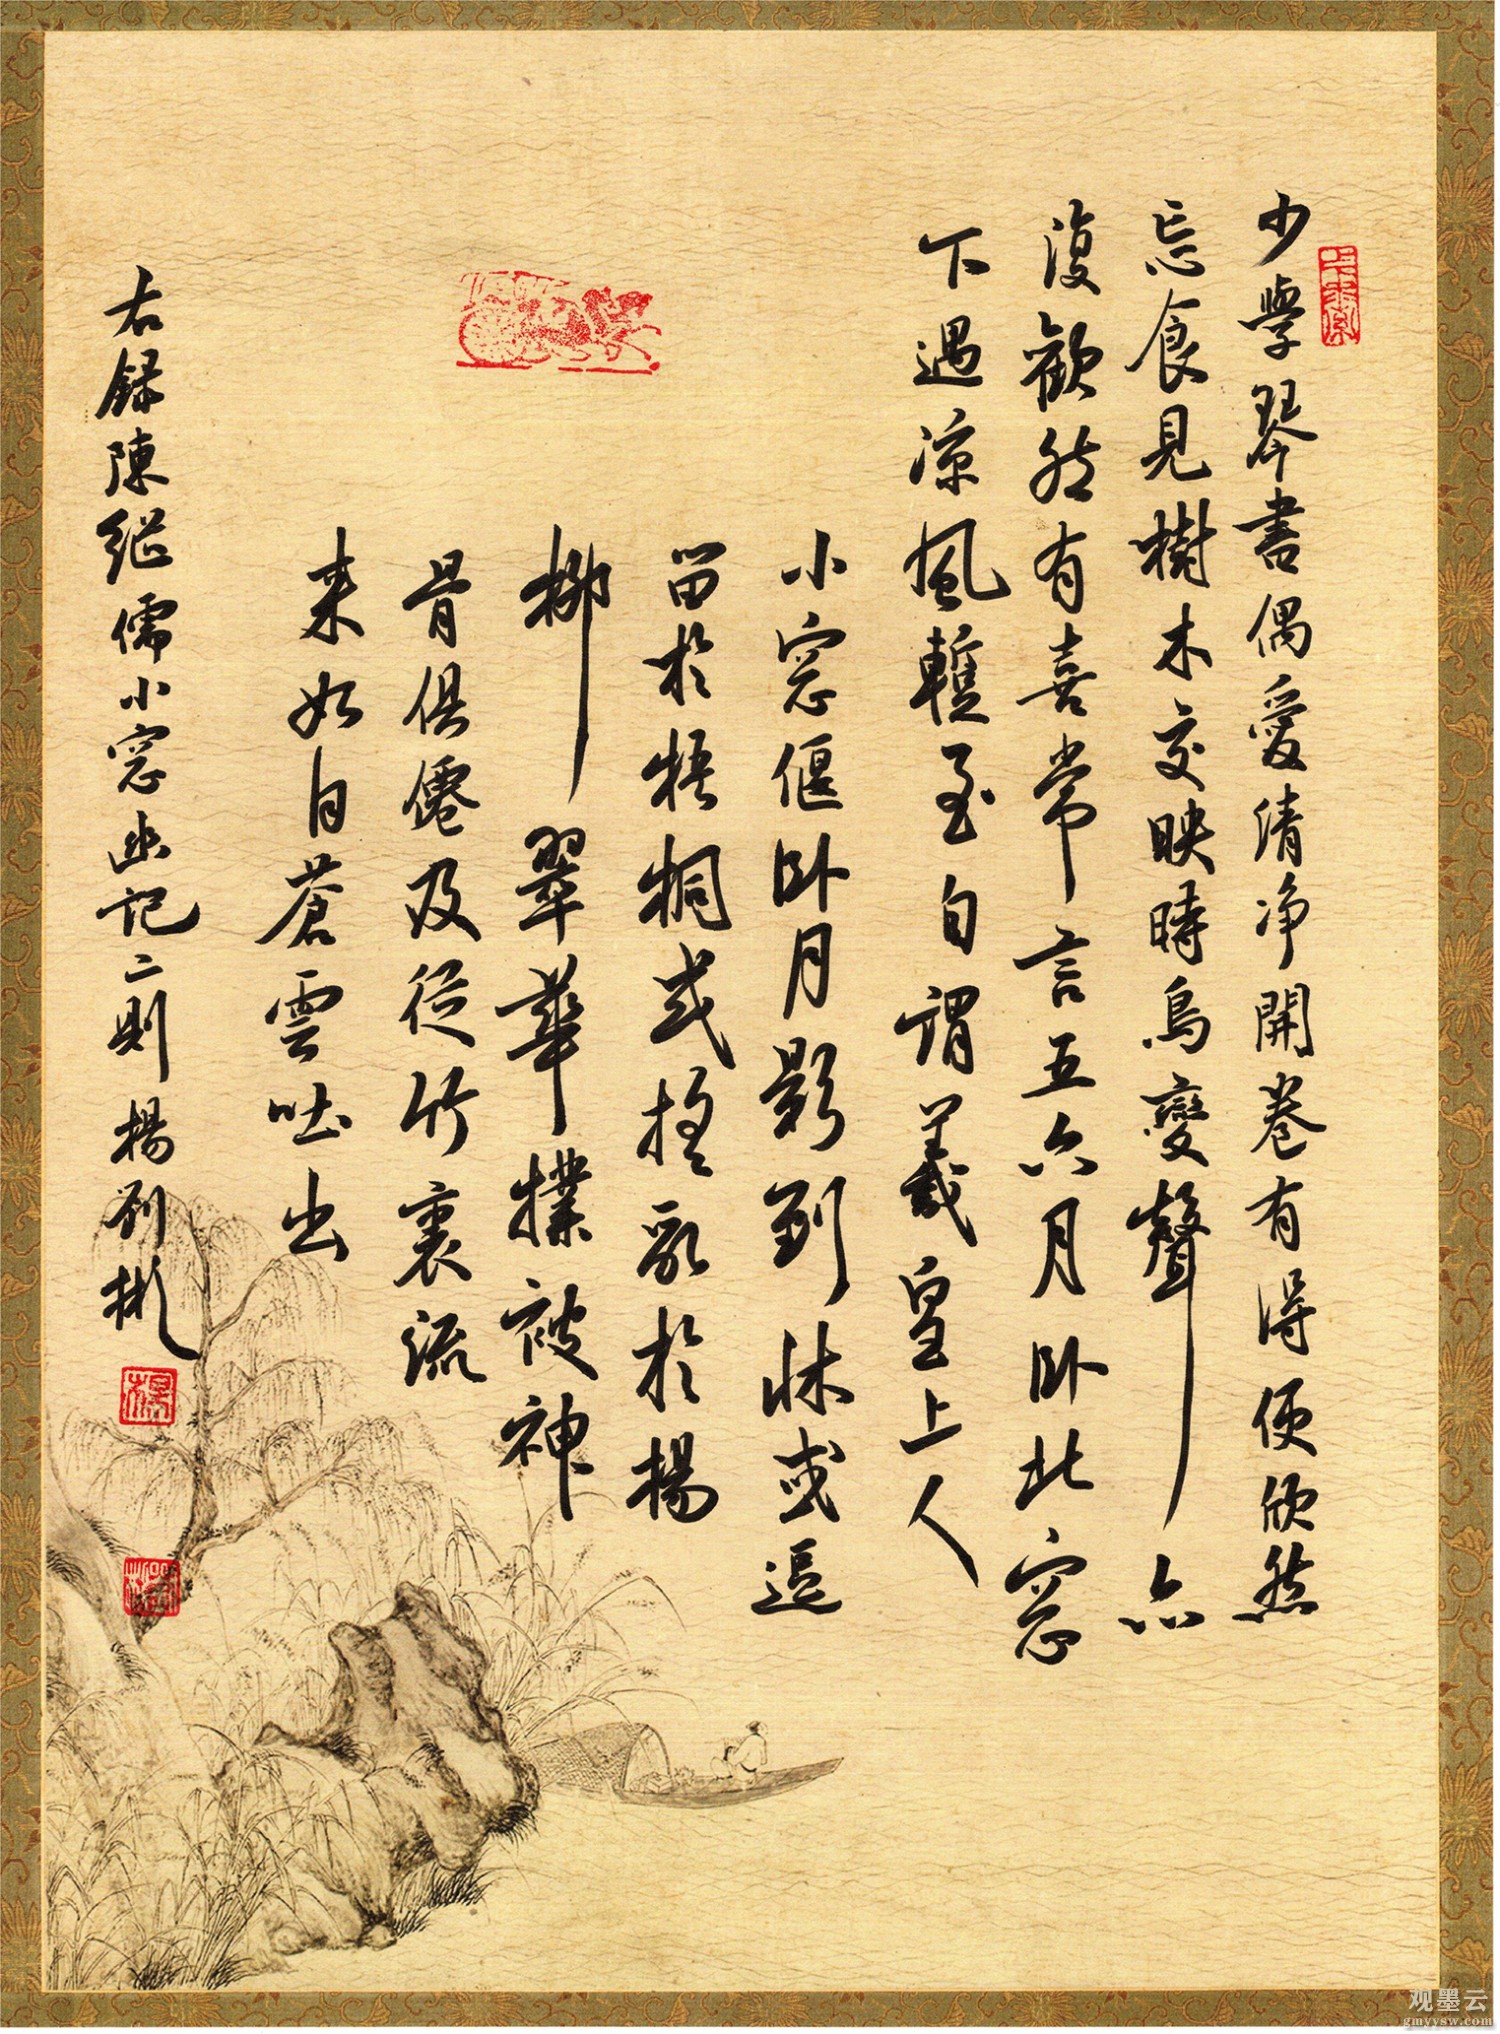 少學琴書偶愛清净開卷有得便欣然
忘食見樹木交映時鳥變聲亦
復歡然有喜常言五六月卧北窓
下遇凉風暫至自謂羲皇上人
小窓偃卧月影到牀或逗
留於梧桐或摇亂於楊
柳翠華撲被神
骨俱僊及從竹裏流
来如自蒼雲吐出
右録陳继儒小窓幽記二則楊彬
楊
观墨云
gmyysw.com